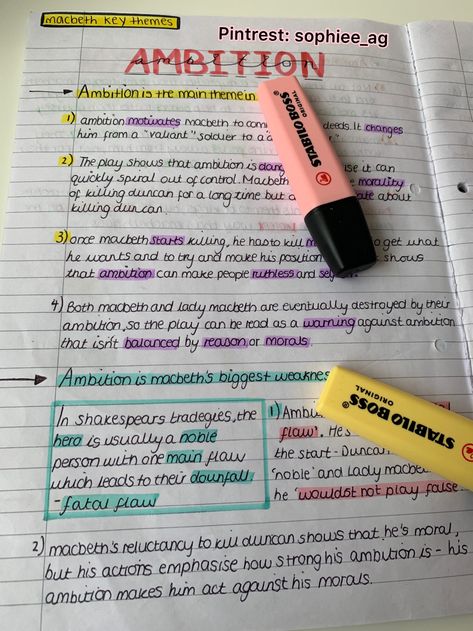 macbeth key themes
Pintrest: sophiee_ag
AMBITION
ambition
Ambition is the main theme in
1) ambition motivates macbeth to com deeds. It changes
him from a "valiant" soldier to a
2) The play shows that ambition is dang se it can
quickly spiral out of control. Macbeth morality
of killing duncan for a long time but about
killing duncan.
3) once macbeth starts killing, he has to kill to get what
he wants and to try and make his position shows
that ambition can make people ruthless and
4) Both macbeth and lady macbeth are eventually destroyed by their
ambition, so the play can be read as a warning against ambition
that isn't balanced by reason or morals.
Ambition is macbeth's biggest weakness
In shakespears tradegies, the
hero is usually a noble
person with one main flaw
which leads to their downfall
- fatal flaw
1) Ambi
flaw'. He's
the start - Duncan
'noble' and lady macbe
he 'wouldst not play false
2) macbeth's reluctancy to kill duncan shows that he's moral,
but his actions emphasise how strong his ambition is - his
ambition makes him act against his morals.
STABILO BOSS
ORIGINAL
STABILO BOSS
ORIGINAL